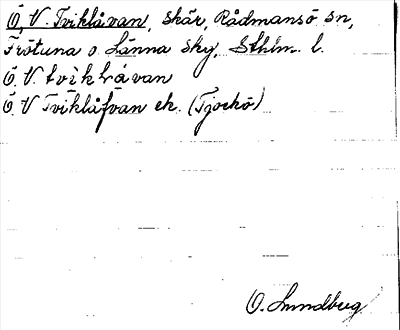 Ö, V Tviklåvan, skär, Rådmansö sn,
Frötuna o. Länna sky, Sthlm l.
Ö, V tviklåvan
Ö, V Tviklåfvan ek. (Tjockö)
O. Lundberg